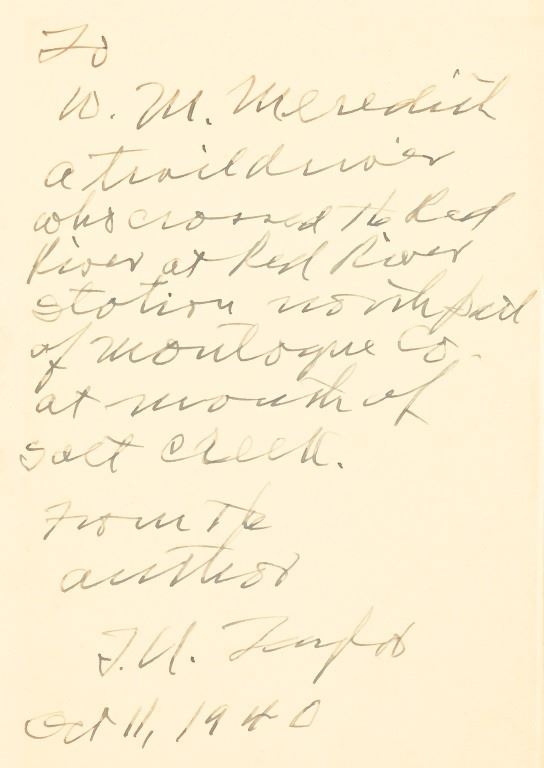 To
W. M. Meredith
a trail driver
who crossed the Red
River at Red River
Station north part
of Montague Co.
at mouth of
Salt Creek.
From the
author
T. U. Taylor
Oct 11, 1940